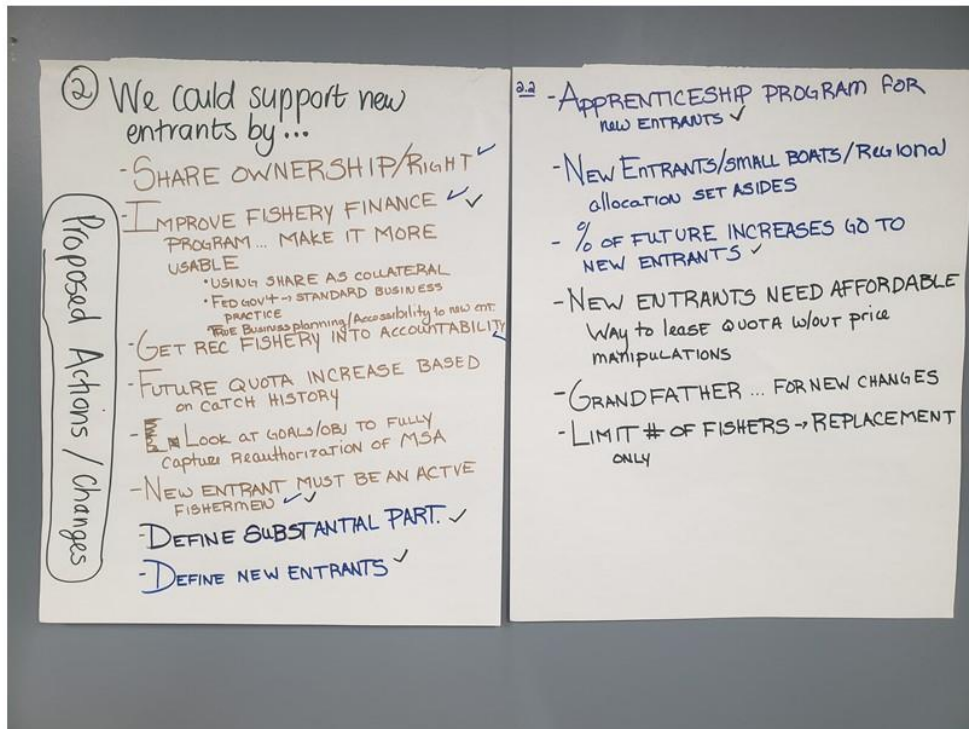 ② We could support new
entrants by...
- SHARE OWNERSHIP/RIGHT ✓
- IMPROVE FISHERY FINANCE ✓ ✓
PROGRAM... MAKE IT MORE
USABLE
• USING SHARE AS COLLATERAL
• FED GOV't → STANDARD BUSINESS
PRACTICE
TRUE Business planning/Accessibility to new ent.
- GET REC FISHERY INTO ACCOUNTABILITY ✓
- FUTURE QUOTA INCREASE BASED
on CATCH HISTORY
- LOOK AT GOALS/OBJ TO FULLY
Capture Reauthorization of MSA
- NEW ENTRANT MUST BE AN ACTVE
FISHERMEN ✓ ✓
- DEFINE SUBSTANTIAL PART. ✓
- DEFINE NEW ENTRANTS ✓
Proposed Actions / Changes
2.2 - APPRENTICESHIP PROGRAM FOR
new ENTRANTS ✓
- NEW ENTRANTS/SMALL BOATS/REGIONAL
allocation SET ASIDES
- % OF FUTURE INCREASES GO TO
NEW ENTRANTS ✓
- NEW ENTRANTS NEED AFFORDABLE
Way to lease QUOTA W/OUT price
MANIPULATIONS
- GRANDFATHER ... FOR NEW CHANGES
- LIMIT # OF FISHERS → REPLACEMENT
ONLY